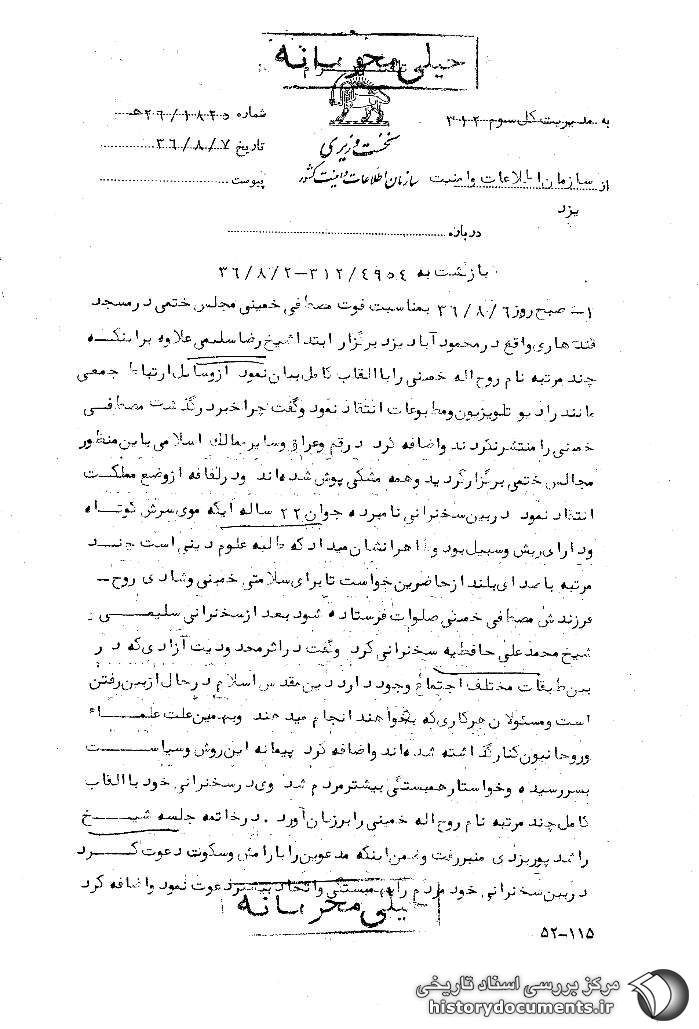 خیلی محرمانه
به مدیریت کل سوم ۳۱۲
شماره ۲۶/۱۸۲۵هـ
نخست وزیری
تاریخ ۳۶/۸/۷
از سازمان اطلاعات وامنیت
سازمان اطلاعات و امنیت کشور
پیوست
یزد
درباره
بازگشت به ۳۱۲/۴۹۵۴-۳۶/۸/۲
۱- صبح روز ۳۶/۸/۶ بمناسبت فوت مصطفی خمینی مجلس ختمی در مسجد
قندهاری واقع در محمود آباد یزد برگزار ابتدا شیخ رضا سلیمی علاوه براینکه
چند مرتبه نام روح اله خمینی را با القاب کامل بیان نمود از وسایل ارتباط جمعی
مانند رادیو تلویزیون ومطبوعات انتقاد نمود وگفت چرا خبر درگذشت مصطفی
خمینی را منتشر نکردند واضافه کرد در قم وعراق وسایر ممالک اسلامی باین منظور
مجالس ختمی برگزار گردید وهمه مشکی پوش شده اند ودر لفافه از وضع مملکت
انتقاد نمود در بین سخنرانی نامبرده جوان ۲۲ ساله ایکه موی سرش کوتاه
ودارای ریش وسبیل بود وظاهرا نشان میداد که طلبه علوم دینی است چند
مرتبه با صدای بلند از حاضرین خواست تا برای سلامتی خمینی وشادی روح -
فرزندش مصطفی خمینی صلوات فرستاده شود بعد از سخنرانی سلیمی
شیخ محمد علی حافظیه سخنرانی کرد وگفت در اثر محدودیت آزادی که در
بین طبقات مختلف اجتماع وجود دارد دین مقدس اسلام در حال از بین رفتن
است ومسئولان هر کاری که بخواهند انجام میدهند وبهمین علت علماء
وروحانیون کنار گذاشته شده اند واضافه کرد پیمانه این روش وسیاست
بسر رسیده وخواستار همبستگی بیشتر مردم شد وی در سخنرانی خود با القاب
کامل چند مرتبه نام روح اله خمینی را بر زبان آورد . در خاتمه جلسه شیخ
راشد پور یزدی منبر رفت وضمن اینکه مدعوین را بارامش وسکوت دعوت کرد
در بین سخنرانی خود مردم را به همبستگی واتحاد بیشتر دعوت نمود واضافه کرد
خیلی محرمانه
۵۲-۱۱۵
مرکز بررسی اسناد تاریخی
historydocuments.ir